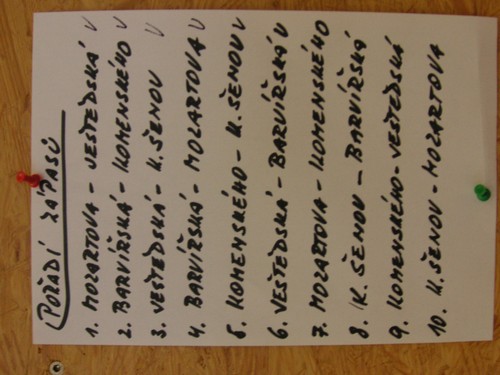 POŘADÍ ZÁPASŮ
1. MOZARTOVA - VEŠTEDSKÁ V
2. BARVÍŘSKÁ - KOMENSKÉHO V
3. VEŠTEDSKÁ - K. ŠENOV V
4. BARVÍŘSKÁ - MOZARTOVA V
5. KOMENSKÉHO - K. ŠENOV V
6. VEŠTEDSKÁ - BARVÍŘSKÁ V
7. MOZARTOVA - KOMENSKÉHO
8. K. ŠENOV - BARVÍŘSKÁ
9. KOMENSKÉHO - VEŠTEDSKÁ
10. K. ŠENOV - MOZARTOVA